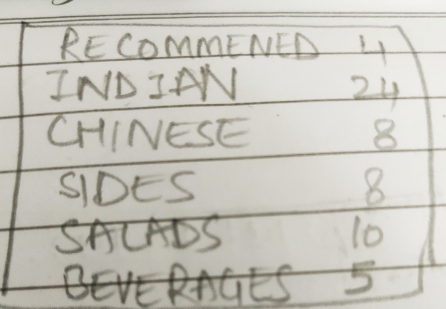 RECOMMENED 4
INDIAN 24
CHINESE 8
SIDES 8
SALADS 10
BEVERAGES 5